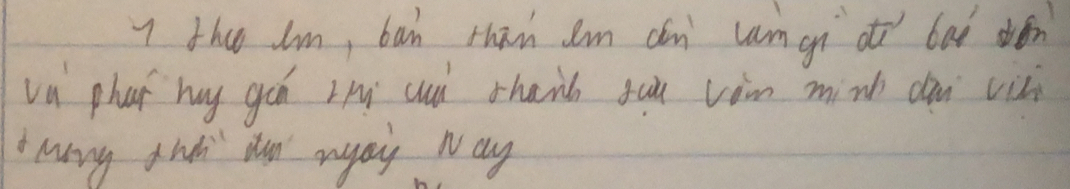 7 theo em, bản thân em cần làm gì để bảo tồn
và phát huy giá trị của thành tựu văn minh đại việt
trong thời đại ngày nay